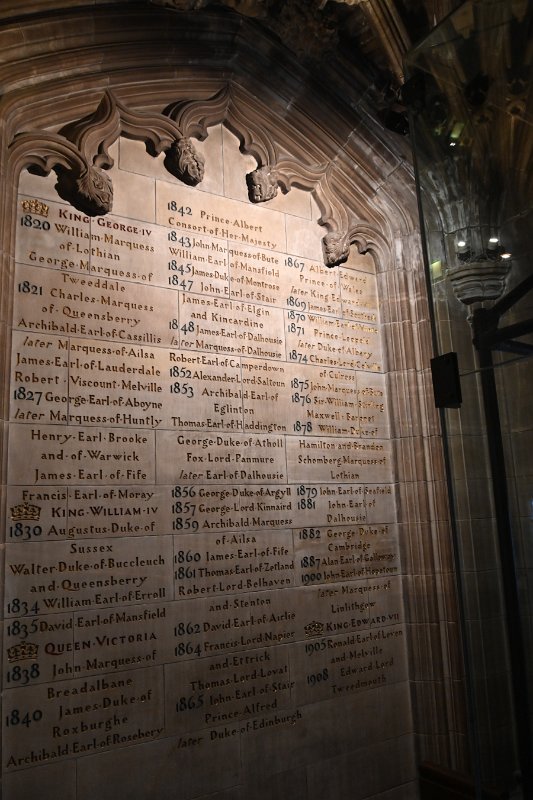 KING·GEORGE·IV
1820 William·Marquess
of·Lothian
George·Marquess·of
Tweeddale
1821 Charles·Marquess
of·Queensberry
Archibald·Earl·of·Cassillis
later Marquess·of·Ailsa
James·Earl·of·Lauderdale
Robert·Viscount·Melville
1827 George·Earl·of·Aboyne
later Marquess·of·Huntly
Henry·Earl·Brooke
and·of·Warwick
James·Earl·of·Fife
Francis·Earl·of·Moray
KING·WILLIAM·IV
1830 Augustus·Duke·of
Sussex
Walter·Duke·of·Buccleuch
and·Queensberry
1834 William·Earl·of·Erroll
1835 David·Earl·of·Mansfield
QUEEN·VICTORIA
1838 John·Marquess·of
Breadalbane
1840 James·Duke·of
Roxburghe
Archibald·Earl·of·Rosebery
1842 Prince·Albert
Consort·of·Her·Majesty
1843 John·Marquess·of·Bute
William·Earl·of·Mansfield
1845 James·Duke·of·Montrose
1847 John·Earl·of·Stair
James·Earl·of·Elgin
and·Kincardine
1848 James·Earl·of·Dalhousie
later Marquess·of·Dalhousie
Robert·Earl·of·Camperdown
1852 Alexander·Lord·Saltoun
1853 Archibald·Earl·of
Eglinton
Thomas·Earl·of·Haddington
George·Duke·of·Atholl
Fox·Lord·Panmure
later Earl·of·Dalhousie
1856 George·Duke·of·Argyll
1857 George·Lord·Kinnaird
1859 Archibald·Marquess
of·Ailsa
1860 James·Earl·of·Fife
1861 Thomas·Earl·of·Zetland
Robert·Lord·Belhaven
and·Stenton
1862 David·Earl·of·Airlie
1864 Francis·Lord·Napier
and·Ettrick
Thomas·Lord·Lovat
1865 John·Earl·of·Stair
Prince·Alfred
later Duke·of·Edinburgh
1867 Albert·Edward
Prince·of·Wales
later King·Edward
1869 James·Earl·of
1870 William·Earl·of
1871 Prince·Leopold
later Duke·of·Albany
1874 Charles·Lord·Colville
of·Culross
1875 John·Marquess·of·Bute
1876 Sir·William·Stirling
Maxwell·Baronet
1878 William·Duke·of
Hamilton·and·Brandon
Schomberg·Marquess·of
Lothian
1879 John·Earl·of·Seafield
1881 John·Earl·of
Dalhousie
1882 George·Duke·of
Cambridge
1887 Alan·Earl·of·Galloway
1900 John·Earl·of·Hopetoun
later Marquess·of
Linlithgow
KING·EDWARD·VII
1905 Ronald·Earl·of·Leven
and·Melville
1908 Edward·Lord
Tweedmouth